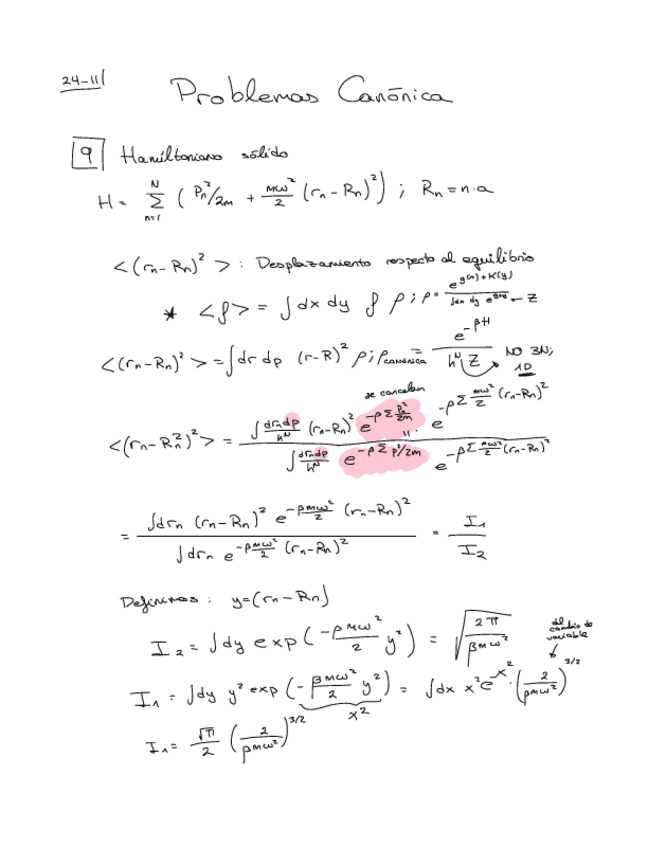 24-11/
Problemas Canónica
9 Hamiltoniano sólido
H = Σ_{n=1}^{N} ( Pn²/2m + mω²/2 (rn - Rn)² ) ; Rn = n·a
<(rn - Rn)²> : Desplazamiento respecto al equilibrio
* <f> = ∫ dx dy f ρ ; ρ = e^{g(x)+K(y)} / ∫dx dy e^{g+k} ← Z
<(rn - Rn)²> = ∫ dr dp (r - R)² ρ ; ρ_{canónica} = e^{-βH} / h^N Z NO 3N; 1D
se cancelan
<(rn - Rn²)²> = ∫ drn dp / h^N (rn - Rn)² e^{-β Σ p²/2m} e^{-β Σ mω²/2 (rn - Rn)²} / ∫ drn dp / h^N e^{-β Σ p²/2m} e^{-β Σ mω²/2 (rn - Rn)²}
= ∫ drn (rn - Rn)² e^{-β mω²/2 (rn - Rn)²} / ∫ drn e^{-β mω²/2 (rn - Rn)²} = I₁ / I₂
Definimos : y = (rn - Rn)
I₂ = ∫ dy exp ( -β mω²/2 y² ) = √(2π / βmω²)
del cambio de variable
I₁ = ∫ dy y² exp ( - βmω²/2 y² ) = ∫ dx x² e^{-x²} · (2 / βmω²)^{3/2}
x²
I₁ = √π/2 (2 / βmω²)^{3/2}